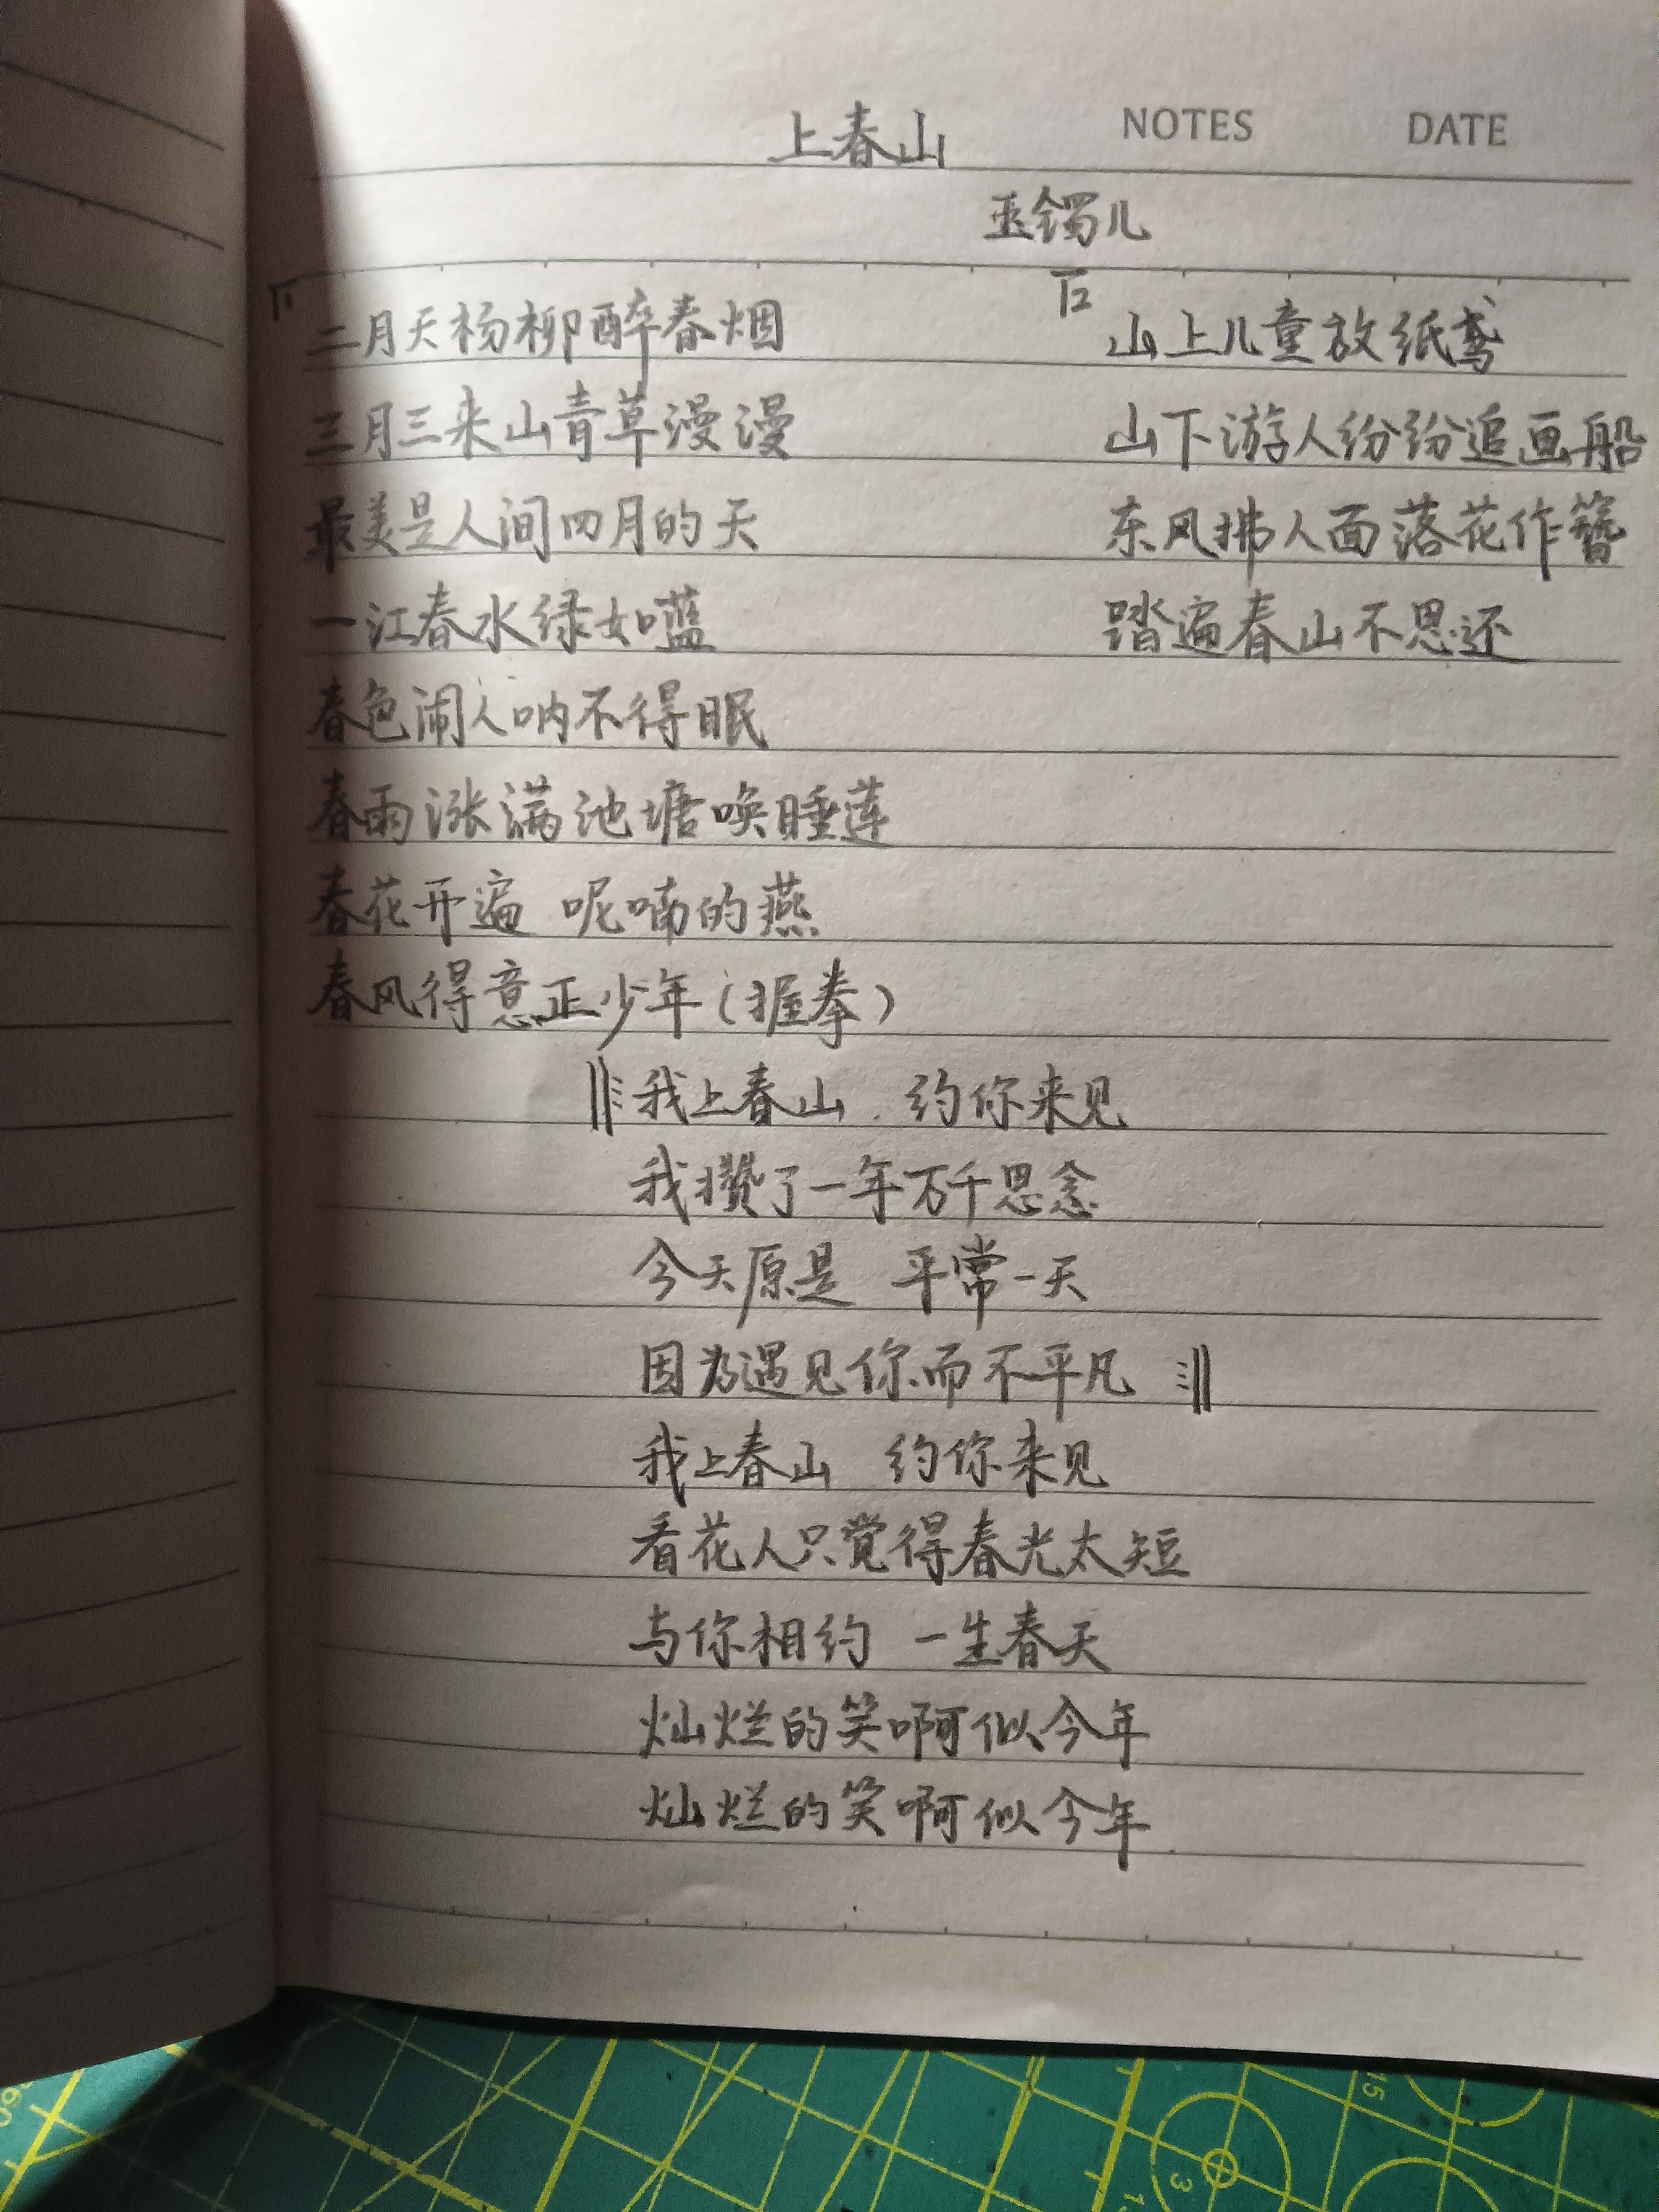 上春山 NOTES DATE
玉镯儿
二月天杨柳醉春烟
三月三来山青草漫漫
最美是人间四月的天
一江春水绿如蓝
春色闹人呐不得眠
春雨涨满池塘唤睡莲
春花开遍 呢喃的燕
春风得意正少年（握拳）
山上儿童放纸鸢
山下游人纷纷追画船
东风拂人面落花作簪
踏遍春山不思还
我上春山 约你来见
我攒了一年万千思念
今天原是 平常一天
因为遇见你而不平凡
我上春山 约你来见
看花人只觉得春光太短
与你相约 一生春天
灿烂的笑啊似今年
灿烂的笑啊似今年
15
3